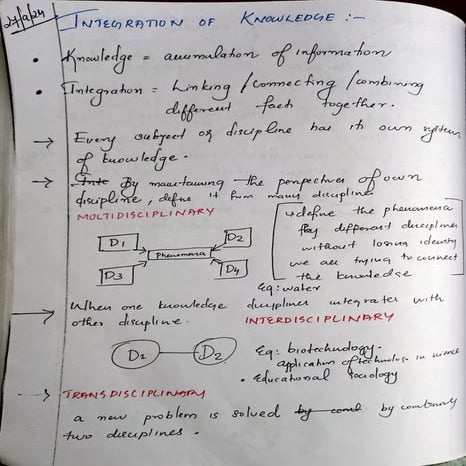 27/9/24
INTEGRATION OF KNOWLEDGE :-
• Knowledge = accumulation of information
• Integration = Linking / connecting / combining
different fact together.
→ Every subject or discipline has its own system
of knowledge.
→ By maintaining the perspectives of own
discipline, define it from many discipline
MULTIDISCIPLINARY
D1 D2
Phenomena
D3 D4
→ define the phenomena
by different disciplines
without losing identity
we are trying to connect
the knowledge
Eq: water
→ When one knowledge disciplines integrates with
other discipline. INTERDISCIPLINARY
D1 D2
Eq: biotechnology.
application of technology in
• Educational sociology
→ TRANSDISCIPLINARY
a new problem is solved by combining
two disciplines.